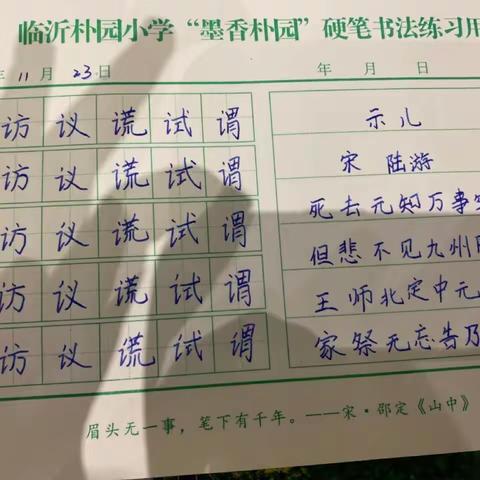 临沂朴园小学“墨香朴园”硬笔书法练习用
年 11 月 23 日
年 月 日
访 议 谎 试 谓
访 议 谎 试 谓
访 议 谎 试 谓
访 议 谎 试 谓
访 议 谎 试 谓
示儿
宋 陆游
死去元知万事
但悲不见九州
王师北定中元
家祭无忘告乃
眉头无一事，笔下有千年。——宋·邵定《山中》